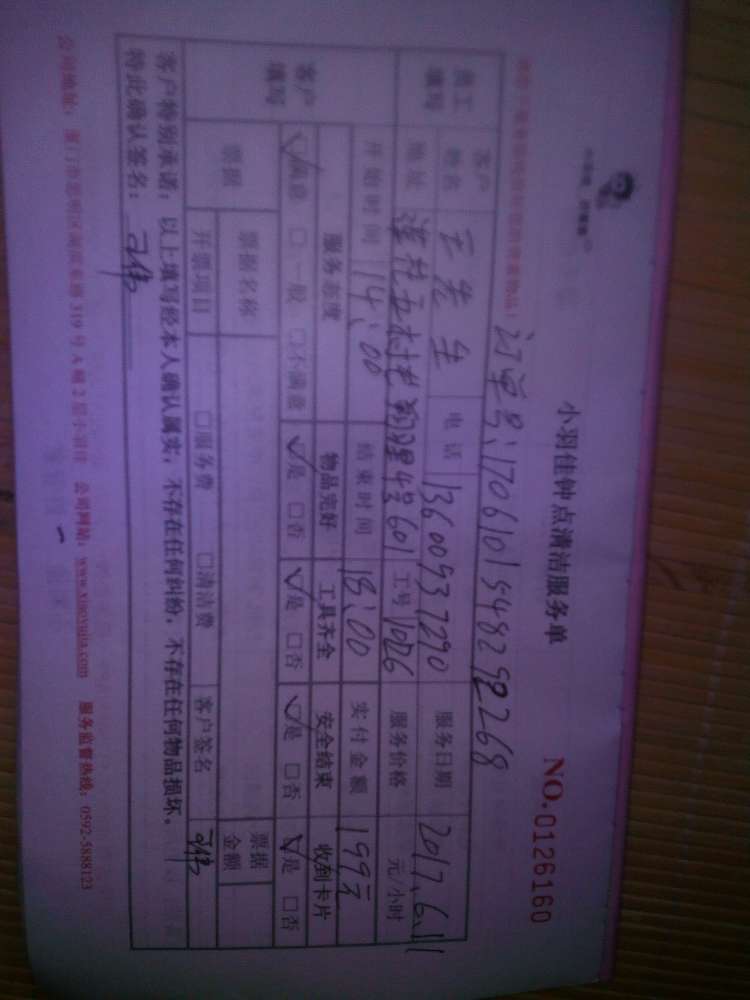 小羽佳钟点清洁服务单
NO.0126160
订单号:170610154829268
员工填写 客户姓名 王先生 电话 13600937290 服务日期 2017.6.11
地址 莲花五村 翔里4号601 工号 1026 服务价格 元/小时
客户填写 开始时间 14:00 结束时间 18:00 实付金额 199元
服务态度 物品完好 工具齐全 安全结束 收到卡片
☑满意 □一般 □不满意 ☑是 □否 ☑是 □否 ☑是 □否 ☑是 □否
票据 票据名称 票据金额
开票项目 □服务费 □清洁费 客户签名
客户特别承诺:以上填写经本人确认属实,不存在任何纠纷,不存在任何物品损坏。
特此确认签名:
公司地址:厦门市思明区 319号A幢2层小羽佳 公司网站:www.xiaoyujia.com 服务监督热线:0592-5888123